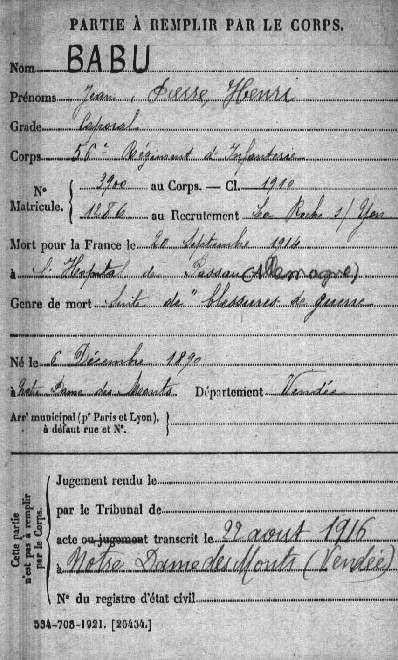 PARTIE À REMPLIR PAR LE CORPS.
Nom BABU
Prénoms Jean, Pierre, Henri
Grade Caporal
Corps 56e Régiment d'Infanterie
N° Matricule. { 3900 au Corps. — Cl. 1910
1486 au Recrutement La Roche s/ Yon
Mort pour la France le 20 Septembre 1914
à l'Hôpital de Passau (Allemagne)
Genre de mort Suite de "blessures de guerre
Né le 6 Décembre 1890
à Notre Dame des Monts Département Vendée
Arrt municipal (pr Paris et Lyon),
à défaut rue et N°.
Cette partie n'est pas à remplir par le Corps.
Jugement rendu le
par le Tribunal de
acte ou jugement transcrit le 22 août 1916
à Notre Dame des Monts (Vendée)
N° du registre d'état civil
534-708-1921. [26434.]